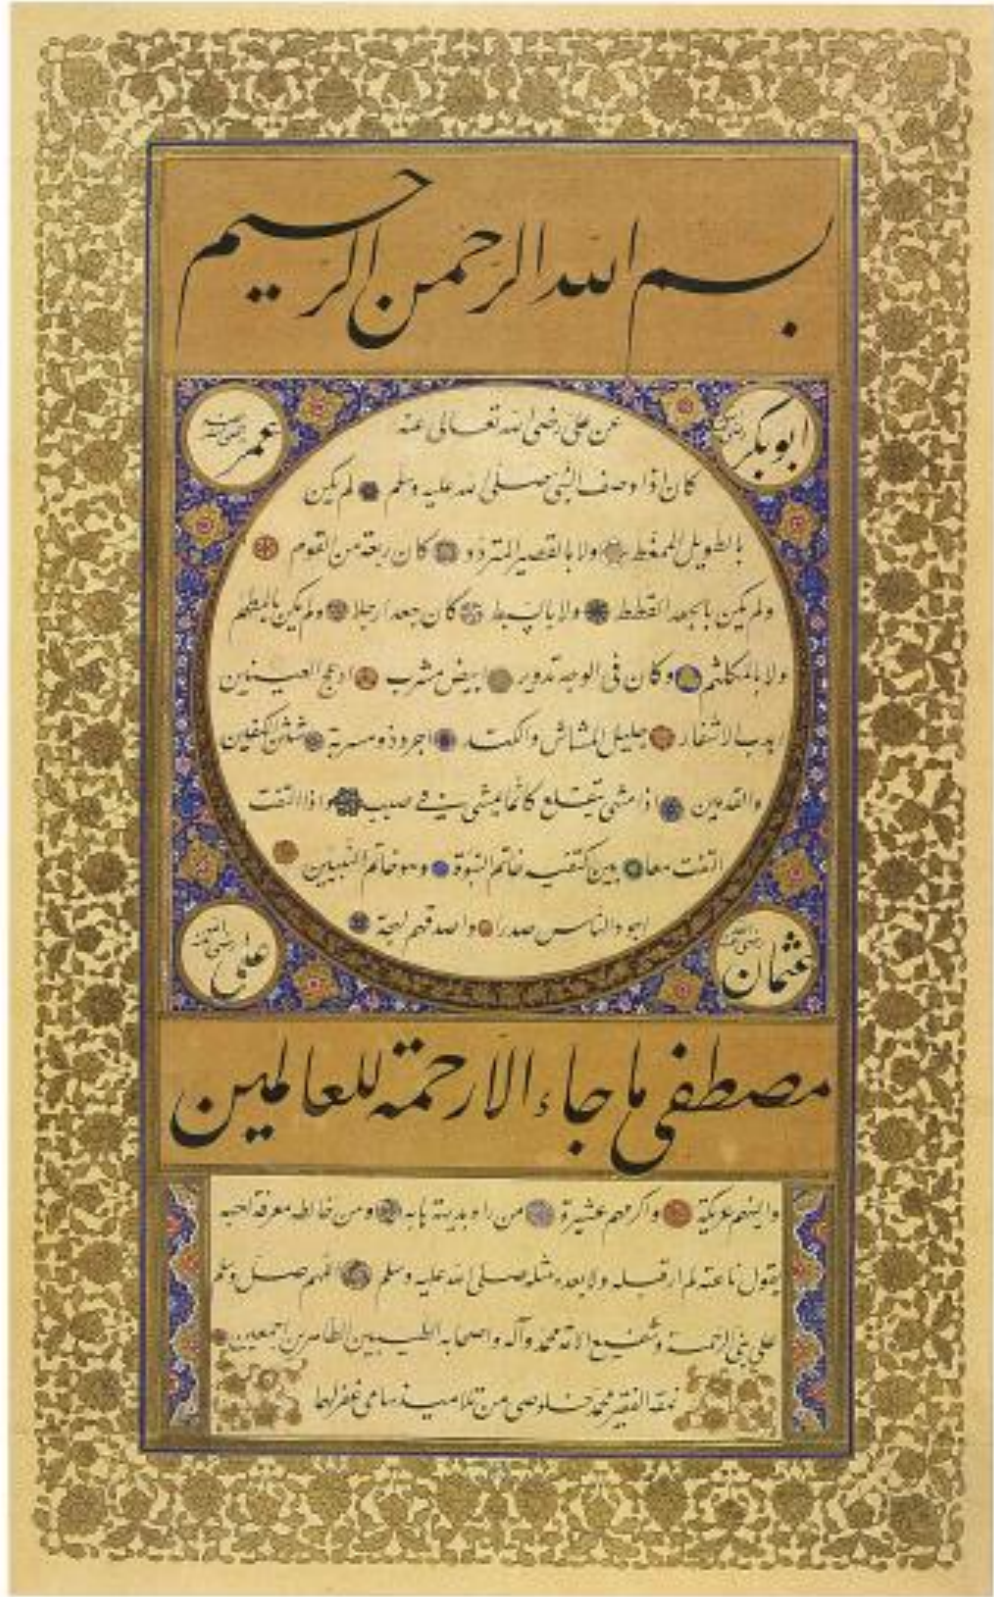 بسم الله الرحمن الرحيم
ابوبكر رضی الله عنه
عمر رضی الله عنه
عن علی رضی الله تعالی عنه
كان اذا وصف النبی صلی الله علیه وسلم لم یكن
بالطویل الممغط ولا بالقصیر المتردد وكان ربعة من القوم
ولم یكن بالجعد القطط ولا بالسبط كان جعدا رجلا ولم یكن بالمطهم
ولا بالمكلثم وكان فی الوجه تدویر ابیض مشرب ادعج العینین
اهدب الاشفار جلیل المشاش والكتد اجرد ذو مسربة شثن الكفین
والقدمین اذا مشی یتقلع كانما یمشی فی صبب واذا التفت
التفت معا بین كتفیه خاتم النبوة وهو خاتم النبیین
اجود الناس صدرا واصدقهم لهجة
عثمان رضی الله عنه
علی رضی الله عنه
مصطفی ما جاء الا رحمة للعالمین
والینهم عریكة واكرمهم عشیرة من راه بدیهة هابه ومن خالطه معرفة احبه
یقول ناعته لم ار قبله ولا بعده مثله صلی الله علیه وسلم اللهم صل وسلم
علی نبی الرحمة وشفیع الامة محمد وآله واصحابه الطیبین الطاهرین اجمعین
نمقه الفقیر محمد خلوصی من تلامیذ سامی غفر لهما